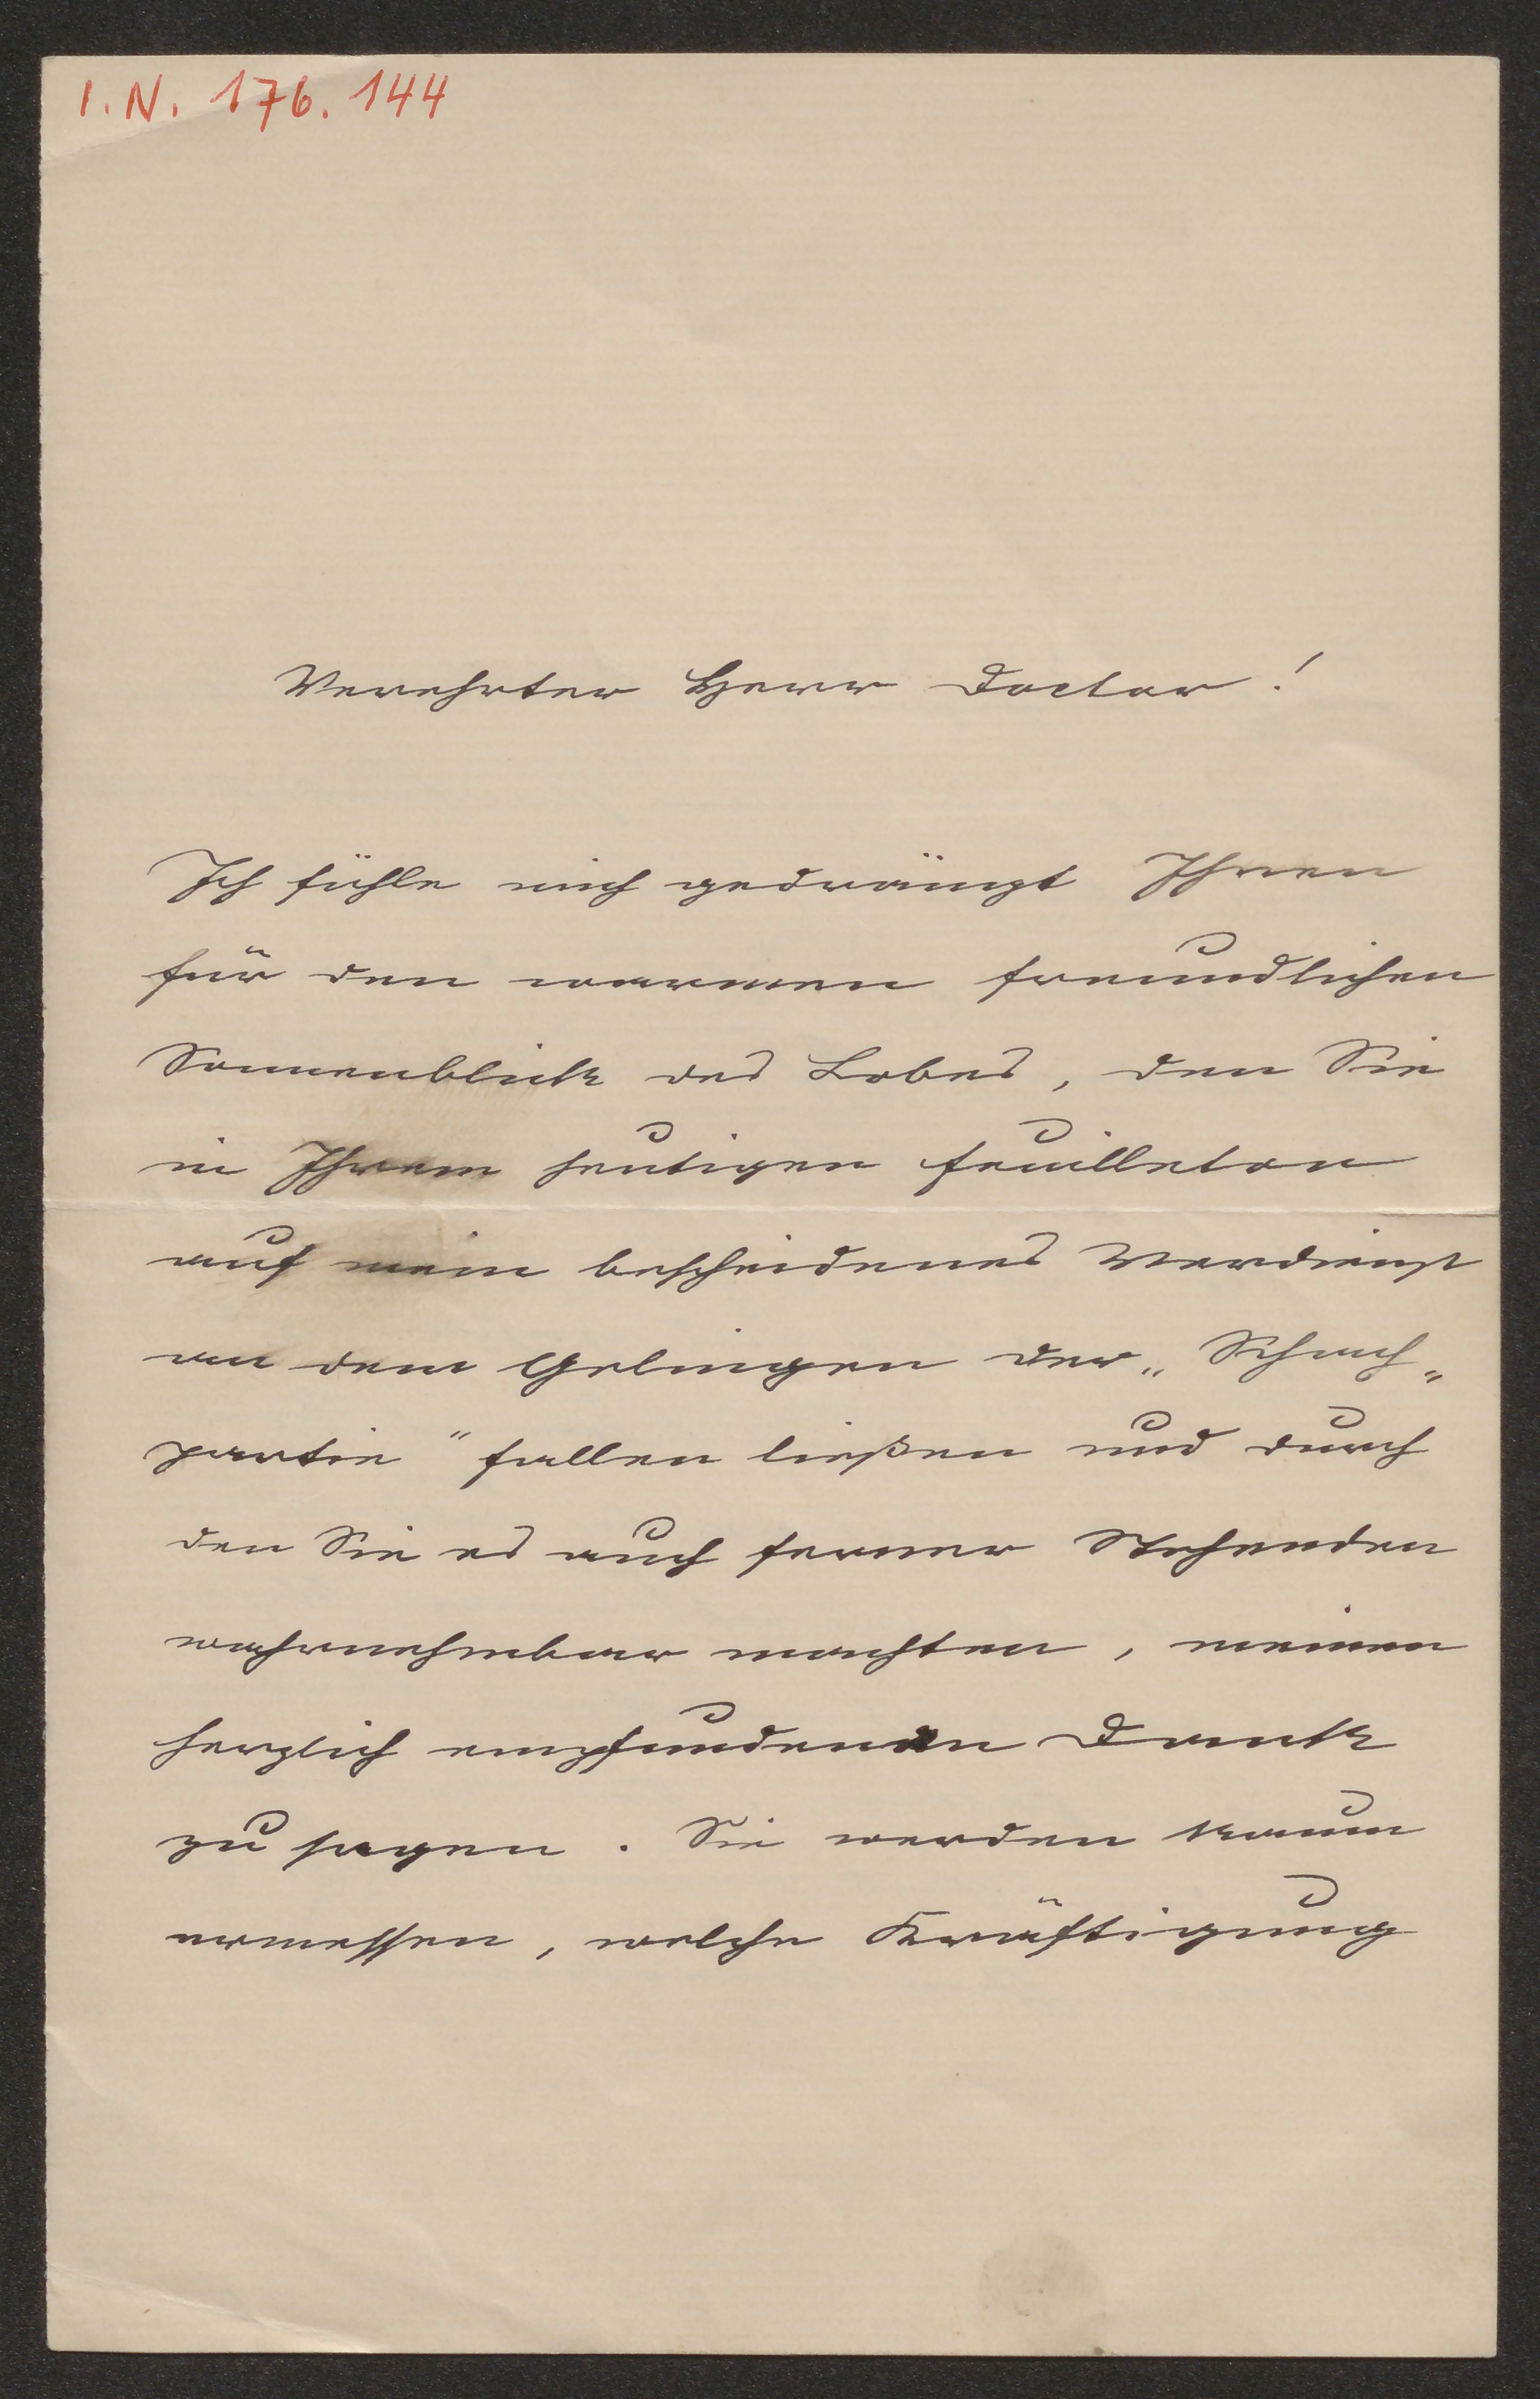 I. N. 176.144
Verehrter Herr Doctor!
Ich fühle mich gedrängt Ihnen
für den warmen freundlichen
Sonnenblick des Lobes, den Sie
in Ihrem heutigen Feuilleton
auf mein bescheidenes Verdienst
an dem Gelingen der „Schach„
partie" fallen ließen und durch
den Sie es auch ferner Stehenden
wahrnehmbar machten, meinen
herzlich empfundenen Dank
zu sagen. Sie werden kaum
ermessen, welche Kräftigung